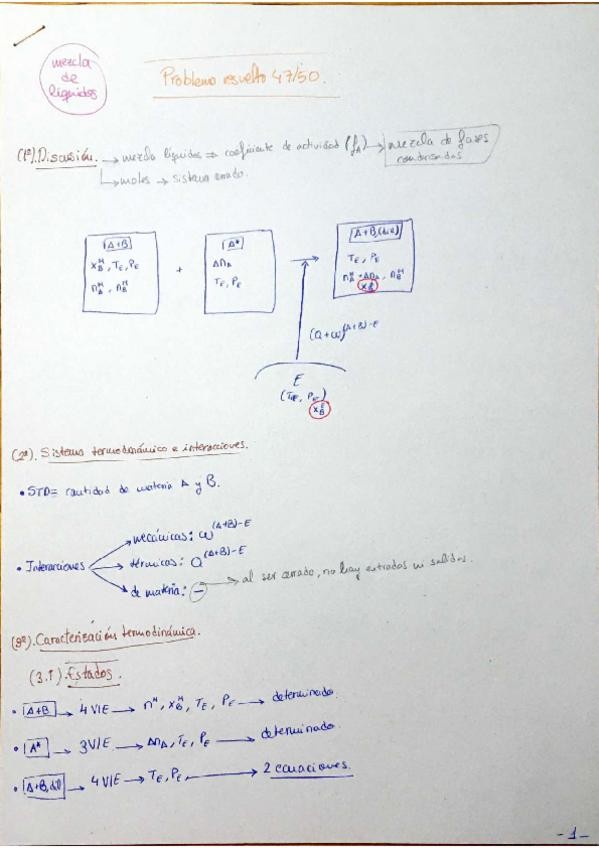 mezcla
de
líquidos
Problema resuelto 47/50.
(1º). Discusión. → mezcla líquidos ⇒ coeficiente de actividad (fA) → mezcla de fases
condensadas
↳ moles → sistema cerrado.
A+B
xB^M, TE, PE
nA^M, nB^M
+
A*
ΔnA
TE, PE
→
A+B,
TE, PE
nA^M + ΔnA, nB^M
xB^E
(Q+W)^(A+B)-E
E
(TE, PE)
xB^E
(2º). Sistema termodinámico e interacciones.
• STD = cantidad de materia A y B.
• Interacciones
mecánicas: W^(A+B)-E
térmicas: Q^(A+B)-E
de materia: − → al ser cerrado, no hay entradas ni salidas.
(3º). Caracterización termodinámica.
(3.1). Estados.
• A+B → 4 VIE → n^M, xB^M, TE, PE → determinado.
• A* → 3 VIE → ΔnA, TE, PE → determinado.
• A+B, → 4 VIE → TE, PE, → 2 ecuaciones.
-1-